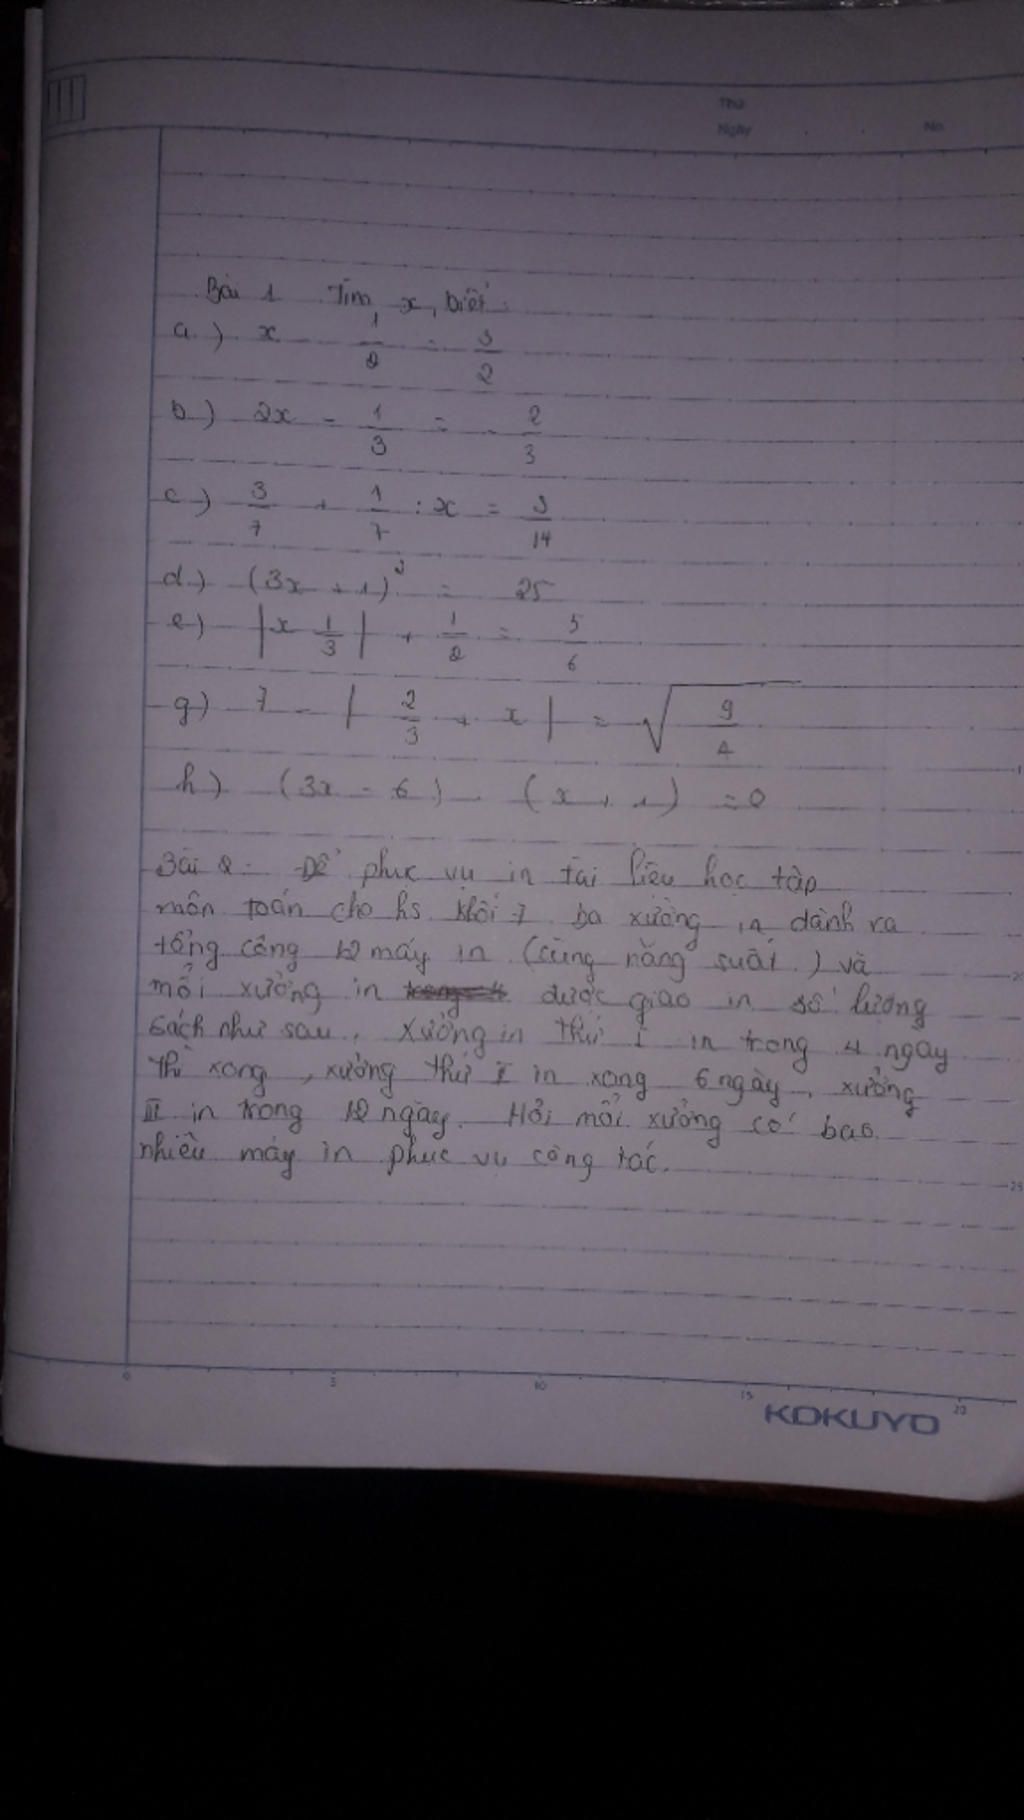 Thứ
Ngày . . No.
Bài 1 Tìm x, biết:
a.) x - 1/2 = 3/2
b.) 2x - 1/3 = - 2/3
c.) 3/7 + 1/7 : x = 3/14
d.) (3x + 1)² = 25
e.) |x 1/3| + 1/2 = 5/6
g) 7 - | 2/3 + x | = √(9/4)
h) (3x - 6) . (x + 1) = 0
Bài 2. Để phục vụ in tài liệu học tập
môn toán cho hs khối 7 ba xưởng in dành ra
tổng cộng 12 máy in (cùng năng suất.) và
mỗi xưởng in được giao in số lượng
sách như sau, xưởng in thứ I in trong 4 ngay
thì xong, xưởng thứ I in xong 6 ngày, xưởng
III in trong 12 ngày. Hỏi mỗi xưởng có bao
nhiêu máy in phục vụ công tác.
0 5 10 15 20
KOKUYO